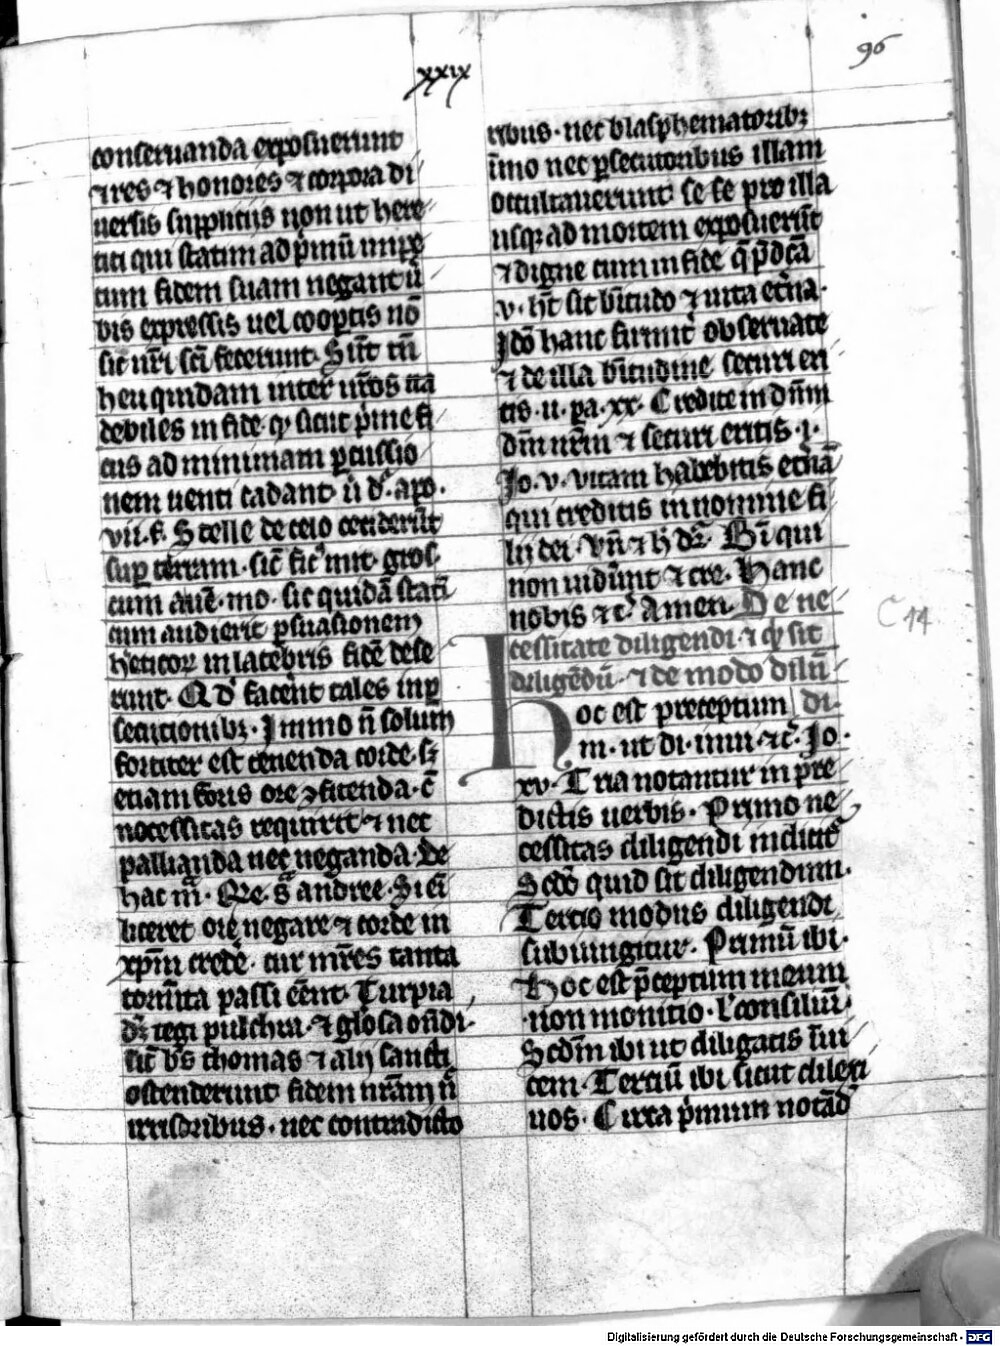 xxix
96
conseruanda exposuerunt
⁊ res ⁊ honores ⁊ corpora di
uersis supplitijs non ut here
tici qui statim ad p̄mū impe
tum fidem suam negant ū
bis expressis uel coopertis nō
sic nr̄i sc̄i fecerunt. Sūt tn̄
heu quidam inter nr̄os
debiles in fide sicut p̄me fi
cus ad minimam ꝑcussio
nem uenti cadant apo.
vii.f. Stelle de celo ceciderūt
suꝑ terram. sic̄ fic᷒ mit. gros
cum aūe. mo. sic quidā stati
cum audierit ꝑsuasionem
heticoꝝ in latebris fidē dese
runt. Qd᷒ facerent tales in ꝑ
secucionibꝫ. Immo n̄ solum
fortiter est tenenda corde. sꝫ
etiam foris ore ꝯfitenda. c̄
necessitas requirit ⁊ nec
pallianda nec neganda. De
hac m̄. Re. s̄ andree. Si eī
liceret ore negare ⁊ corde in
xp̄m crede᷒. cur mr̄es tanta
torm̄ta passi eēnt. Turpia
dr̄ tegi pulchra. ⁊ glosa on̄di.
sic̄ bs̄ thomas ⁊ alij sancti
ostenderunt fidem nr̄am n̄
irrisoribus. nec contradicto
ribus. nec blasphematoribꝫ
īmo nec ꝑsecutoribus illam
occultauerunt. se se pro illa
usqꝫ ad mortem exposuerūt
⁊ digne cum in fide q̄ p̄dc̄a
.v. hr̄ sit b̄titudo ⁊ uita etn̄a.
Jdō hanc firmit᷒ obseruate
⁊ de illa b̄titudine securi eri
tis. ii. pa. xx. Credite in dn̄m
dm̄ nr̄m ⁊ securi eritis. i.
Jo. v. vitam habebitis etn̄ā
qui creditis in nomine fi
lij dei. Vn̄ ⁊ h dr̄. Bī qui
non uidr̄unt ⁊ cre. Hanc
nobis ⁊ c᷒. Amen. De ne
cessitate diligendi. ⁊ qͥ sit
diligēdū. ⁊ de modo dilū
C 14
Hoc est preceptum di.
m. ut di. inui. ⁊c᷒. Jo.
xv. Tria notantur in pre
dictis uerbis. Primo ne
cessitas diligendi indicit᷒
Scd̄o quid sit diligendum.
Tercio modus diligendi
subiungitur. Primū ibi.
Hoc est p̄ceptum meum
non monitio. l' consiliū.
Scd̄m ibi ut diligatis īui
cem. Terciū ibi sicut dilexi
uos. Circa p̄mum notād᷒
Digitalisierung gefördert durch die Deutsche Forschungsgemeinschaft - DFG